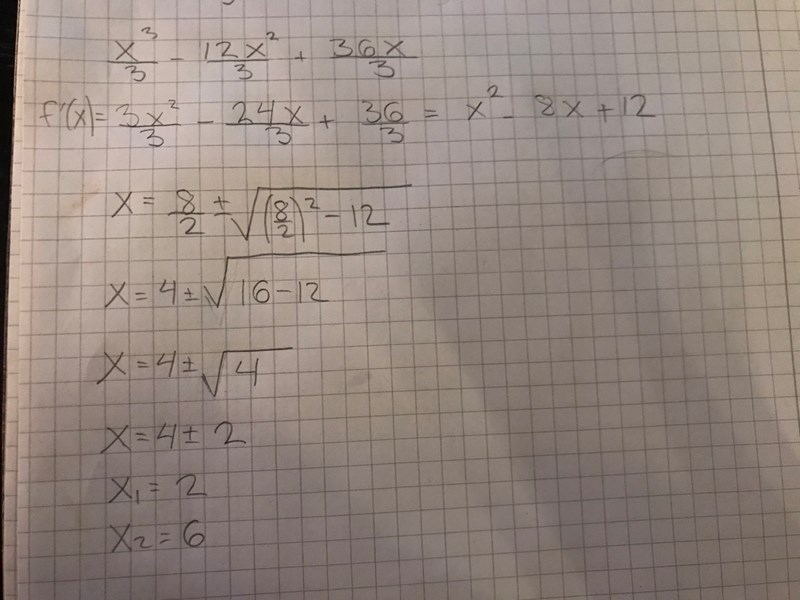 x³/3 - 12x²/3 + 36x/3
f'(x) = 3x²/3 - 24x/3 + 36/3 = x² - 8x + 12
x = 8/2 ± √((8/2)² - 12)
x = 4 ± √(16 - 12)
x = 4 ± √4
x = 4 ± 2
x₁ = 2
x₂ = 6